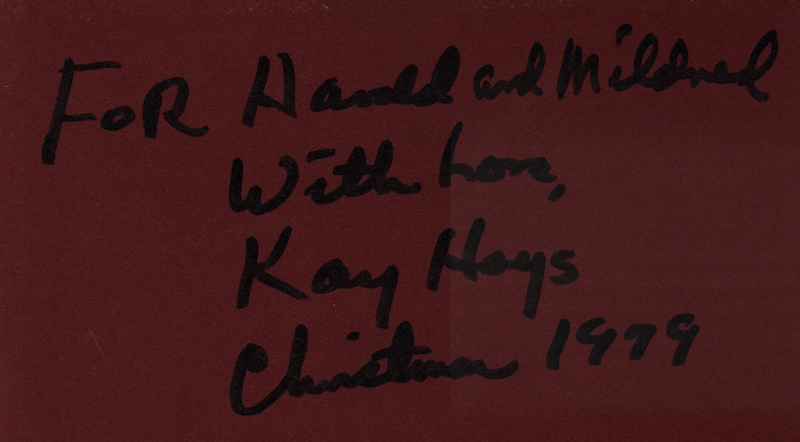 FoR Harold and Mildred
With Love,
Kay Hays
Christmas 1979